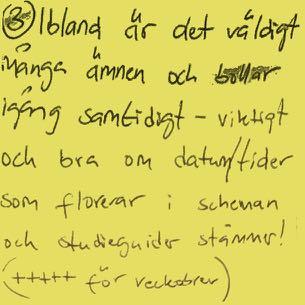 ③ Ibland är det väldigt
många ämnen och bollar
igång samtidigt - viktigt
och bra om datum/tider
som florerar i scheman
och studieguider stämmer!
(+++++ för veckobrev)